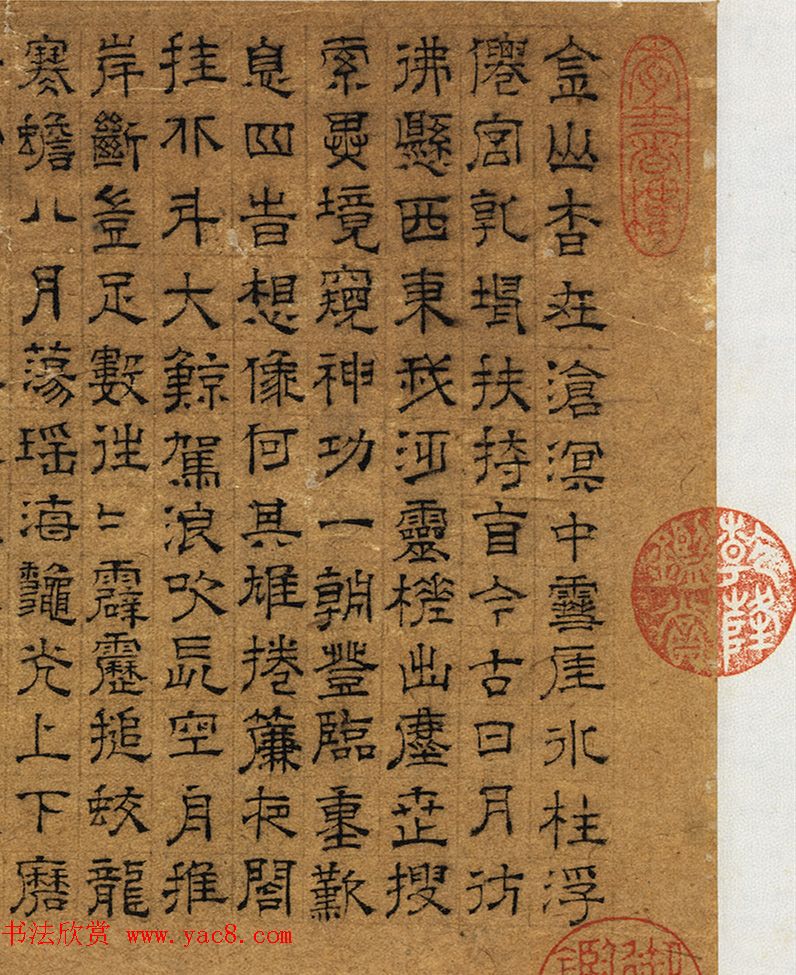 金山杳在滄溟中雪崖冰柱浮
僊宮乾坤扶持自今古日月彷
彿懸西東我泛靈槎出塵世搜
索異境窺神功一朝登臨重歎
息四旹想像何其雄捲簾夜閣
挂北斗大鯨駕浪吹長空舟摧
岸斷豈足數往〻霹靂搥蛟龍
寒蟾八月蕩瑤海龝光上下磨
乾隆鑑賞
书法欣赏 www.yac8.com